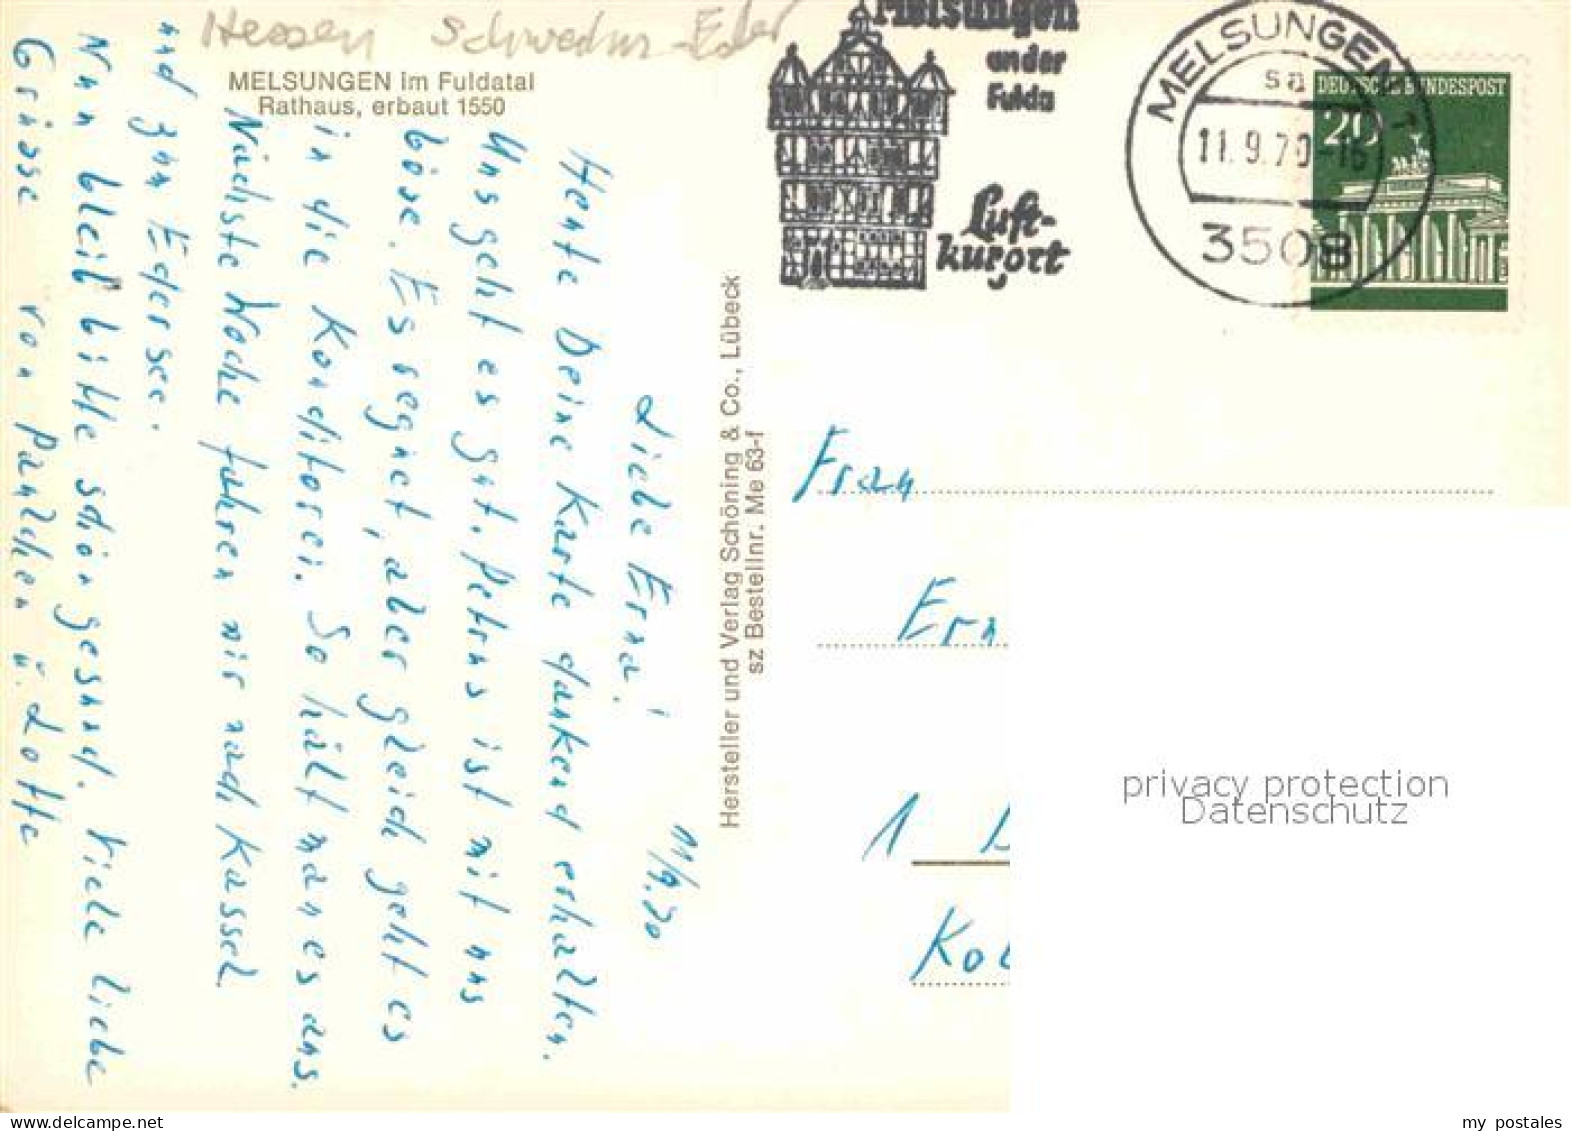 Hessen Schwedur-Eder
MELSUNGEN im Fuldatal
Rathaus, erbaut 1550
11/9.70
Liebe Erna!
Heute Deine Karte dankend erhalten.
Uns geht es gut. Petrus ist mit uns
böse. Es regnet, aber gleich geht es
in die Konditorei. So hält man es aus.
Nächste Woche fahren wir nach Kassel
und zum Edersee.
Nun bleib bitte schön gesund. Viele liebe
Grüsse von Paulchen u. Lotte
Hersteller und Verlag Schöning & Co., Lübeck
sz Bestellnr. Me 63-f
Melsungen
an der
Fulda
Luft-
kurort
MELSUNGEN 1
sa
11.9.70-16
3508
DEUTSCHE BUNDESPOST
20
Frau
Ern
1
Ko
privacy protection
Datenschutz
my postales